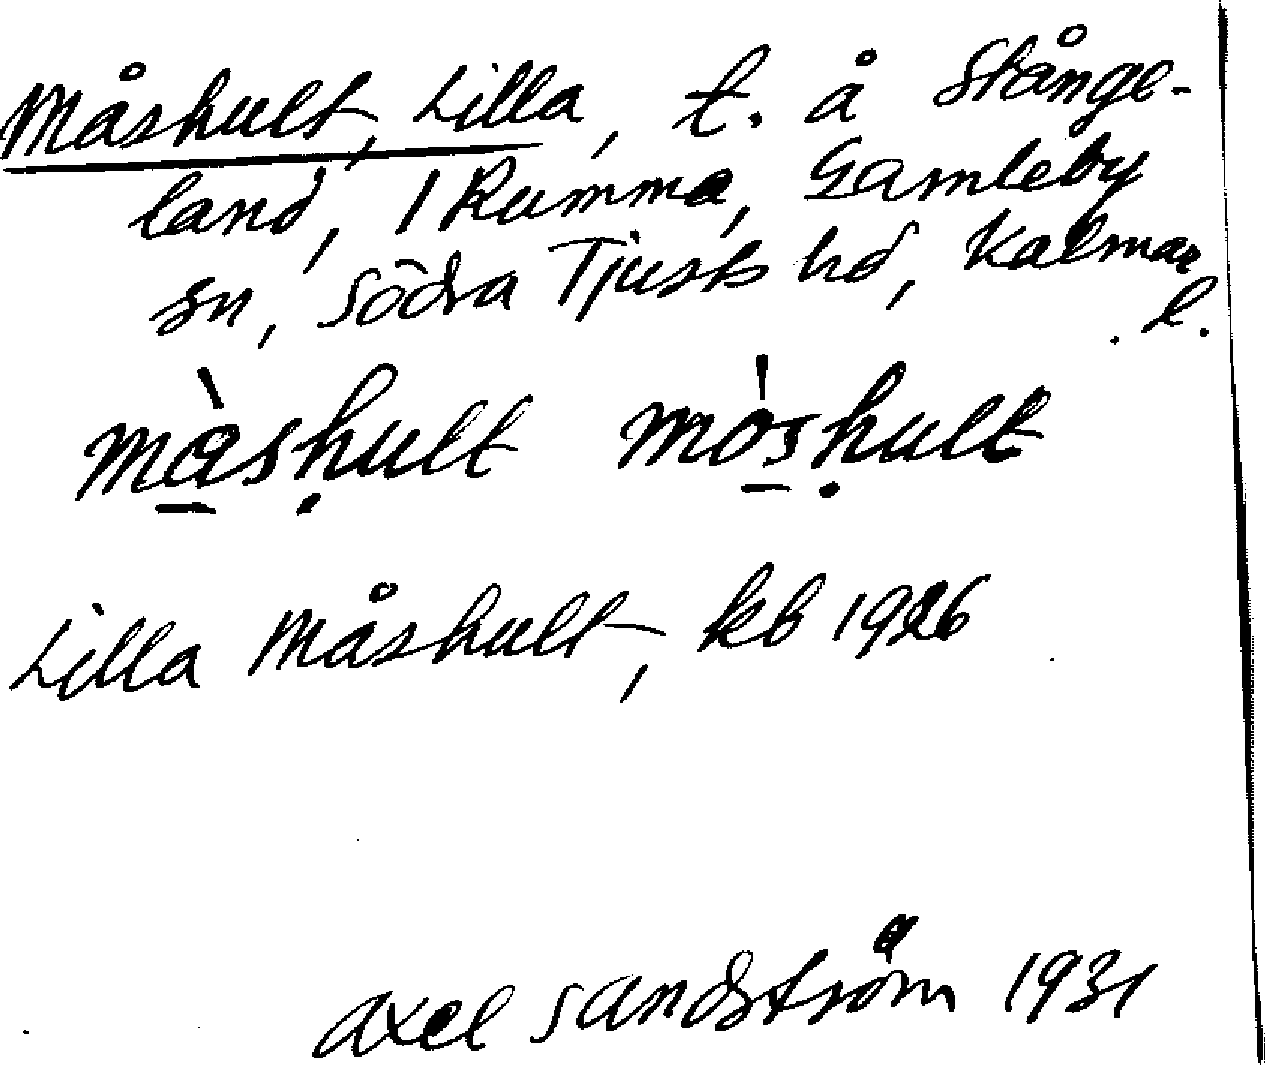 Måshult, Lilla, t. å Stånge-
land, 1 Rumma, Gamleby
sn, Södra Tjusts hd, Kalmar
l.
màṣhult móṣhult
Lilla Måshult, kb 1926
Axel Sandström 1931